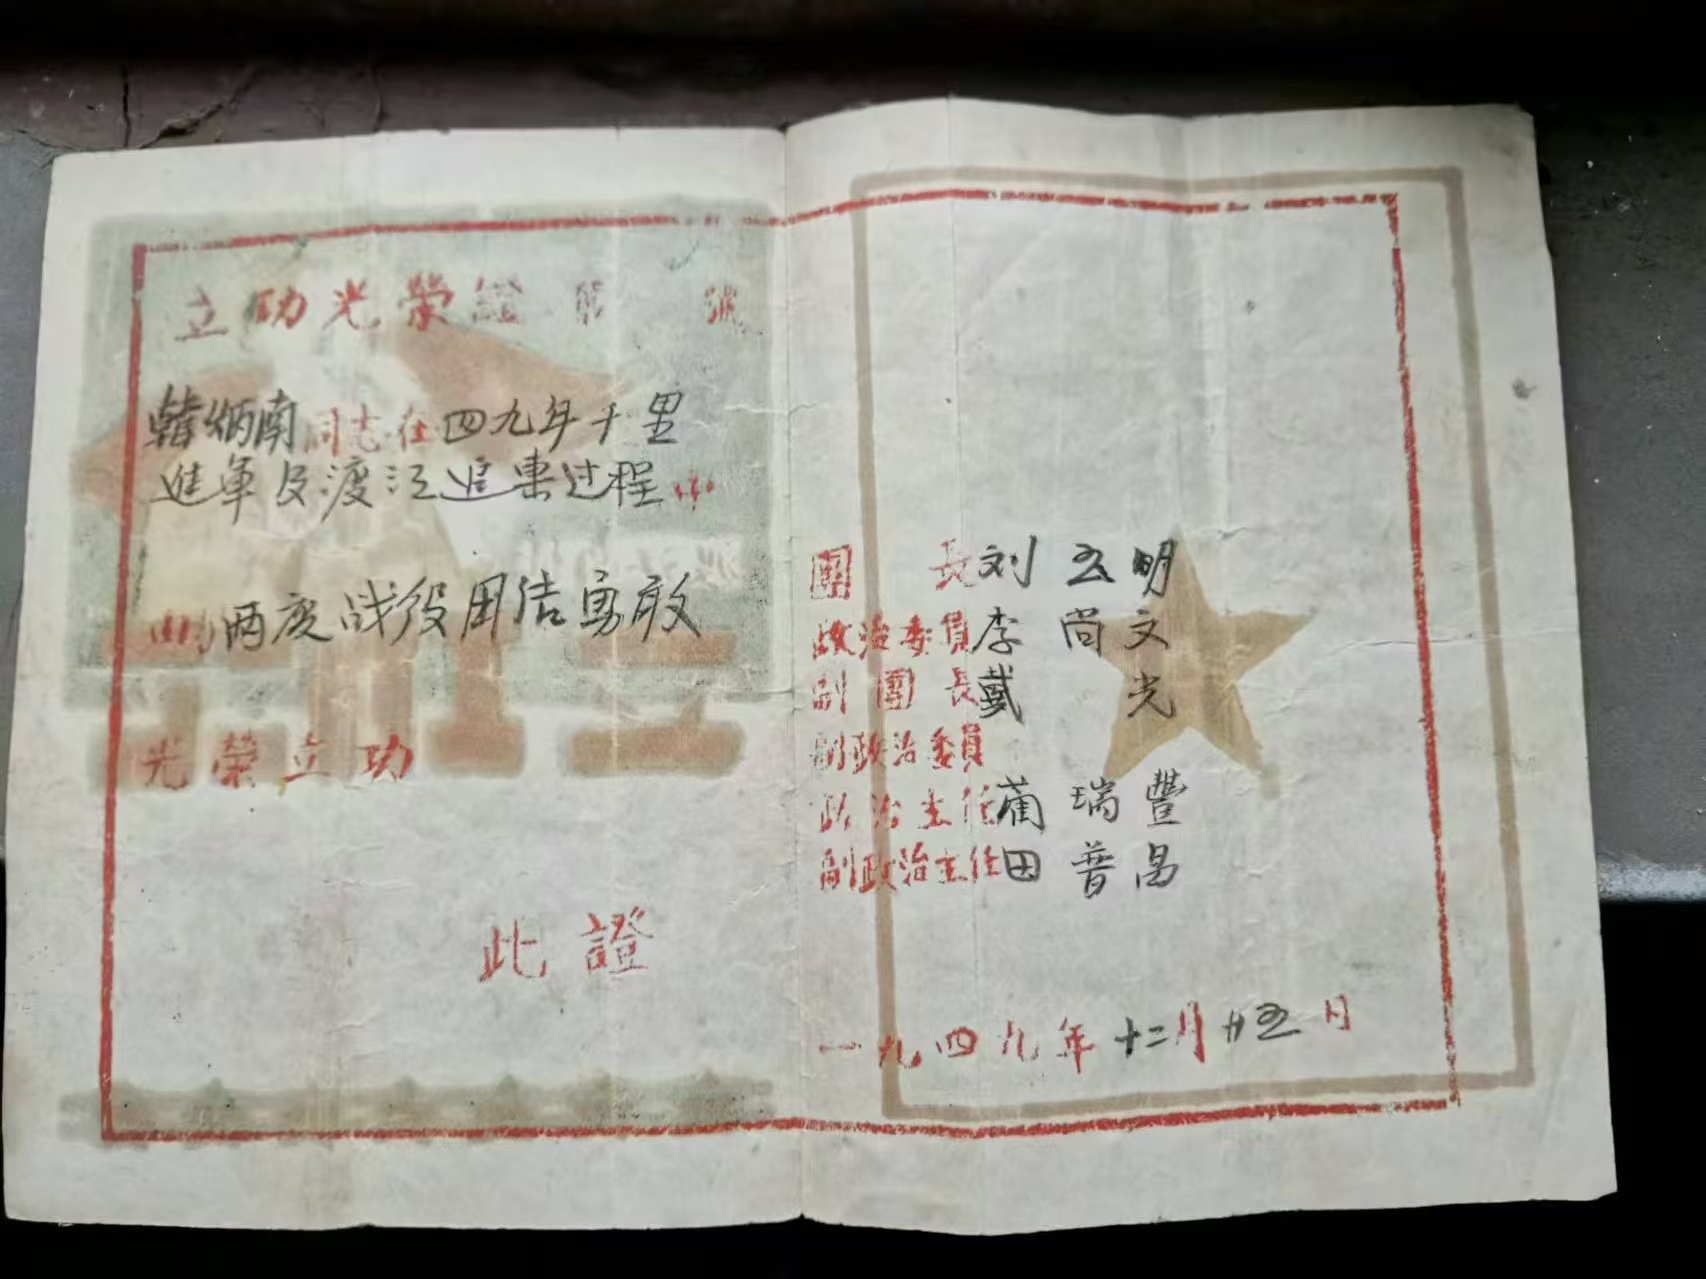 立功光榮證 第 號
韓炳南同志在四九年千里
進軍及渡江追東过程中
由於两度战役团结勇敢
光榮立功
此證
團 長 刘玉明
政治委員 李尚文
副團長 戴光
副政治委員
政治主任 蔺瑞豐
副政治主任 田普昌
一九四九年十二月廿五日